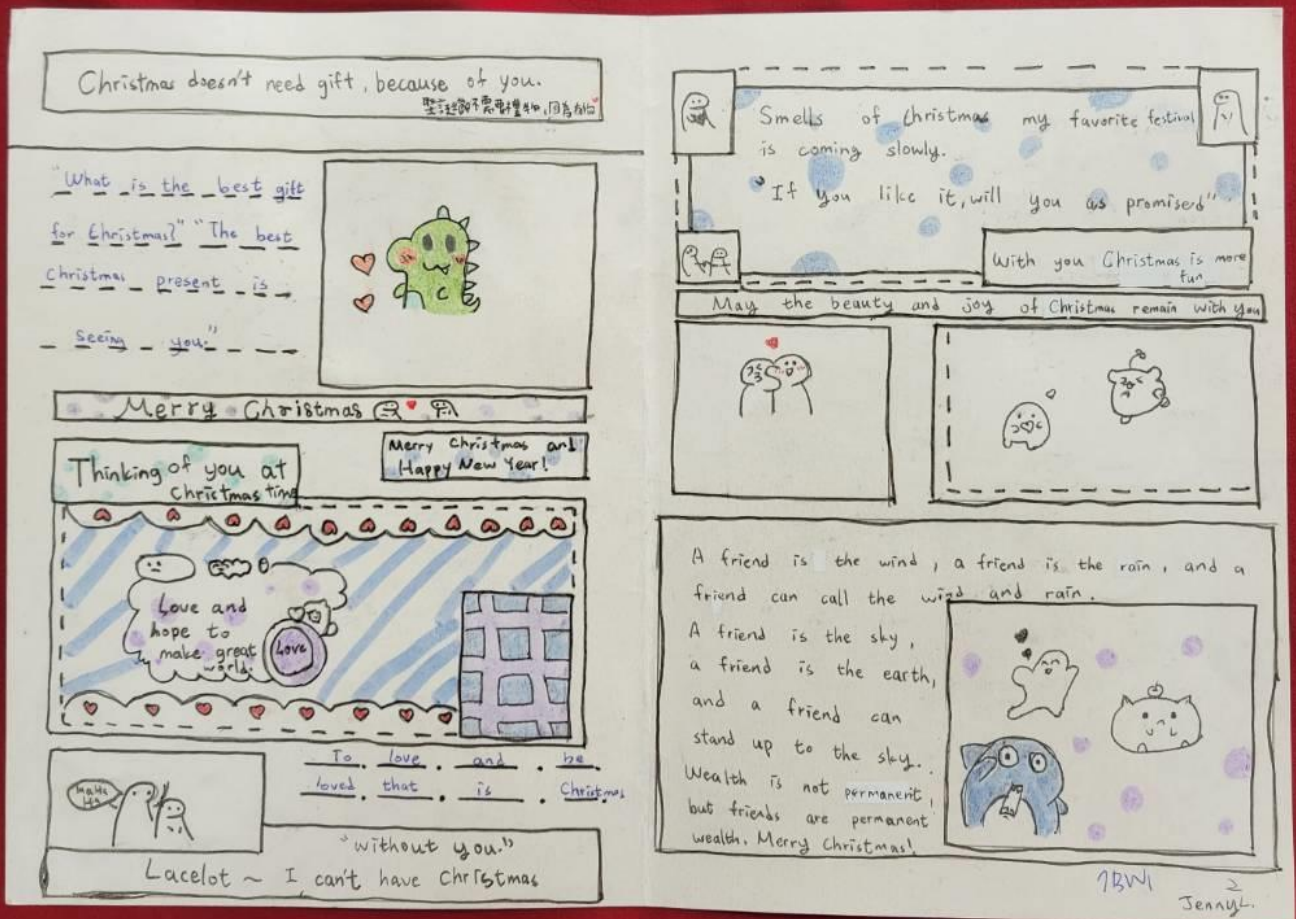 Christmas doesn't need gift, because of you.
聖誕節不需要禮物,因為有你
"What is the best gift
for Christmas?" "The best
Christmas present is
seeing you."
Merry Christmas
Thinking of you at
Christmas time
Merry Christmas and
Happy New Year!
Love and
hope to
make great
world.
Love
HaHa
Ha
To love and be
loved that is Christmas
"without you."
Lacelot ~ I can't have Christmas
Smells of Christmas my favorite festival
is coming slowly.
"If you like it, will you as promised"
With you Christmas is more
fun
May the beauty and joy of Christmas remain with you
A friend is the wind, a friend is the rain, and a
friend can call the wind and rain.
A friend is the sky,
a friend is the earth,
and a friend can
stand up to the sky.
Wealth is not permanent,
but friends are permanent
wealth. Merry Christmas!
7BW1
2
Jenny L.